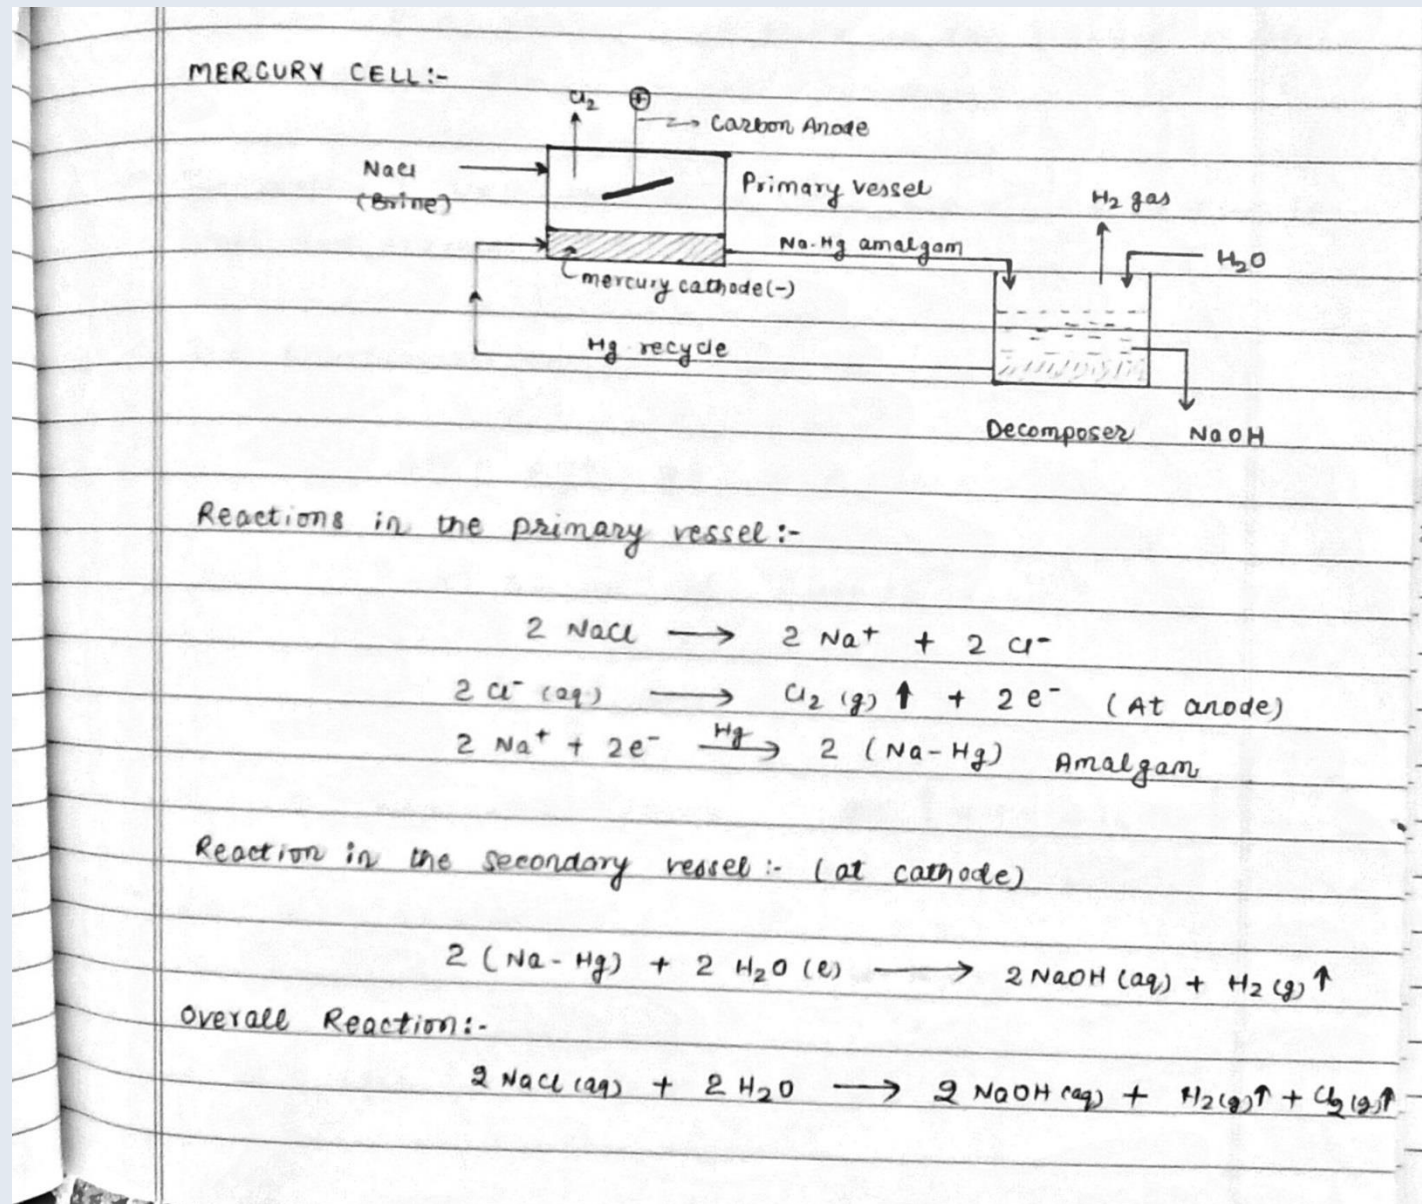 MERCURY CELL:-
Cl2
⊕
→ Carbon Anode
NaCl
(Brine)
Primary vessel
H2 gas
Na-Hg amalgam
H2O
mercury cathode(-)
Hg recycle
Decomposer
NaOH
Reactions in the primary vessel:-
2 NaCl ⟶ 2 Na+ + 2 Cl-
2 Cl- (aq) ⟶ Cl2 (g) ↑ + 2e- (At anode)
2 Na+ + 2e- Hg⟶ 2 (Na-Hg) Amalgam
Reaction in the secondary vessel:- (at cathode)
2 (Na-Hg) + 2 H2O (l) ⟶ 2 NaOH (aq) + H2 (g) ↑
Overall Reaction:-
2 NaCl (aq) + 2 H2O ⟶ 2 NaOH (aq) + H2(g)↑ + Cl2(g)↑